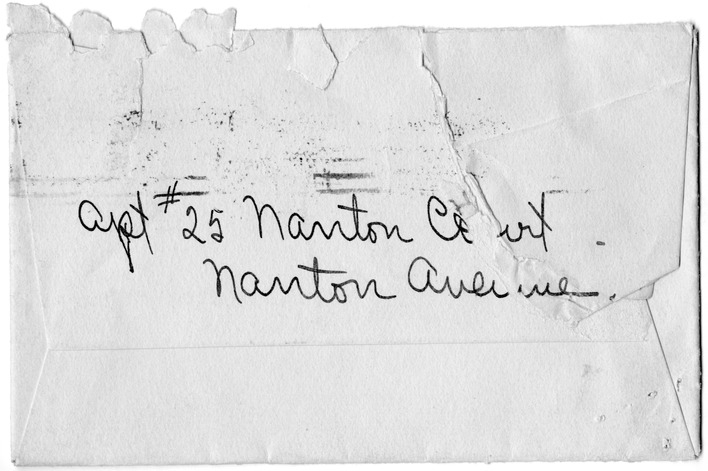 Apt #25 Nanton Court.
Nanton Avenue.